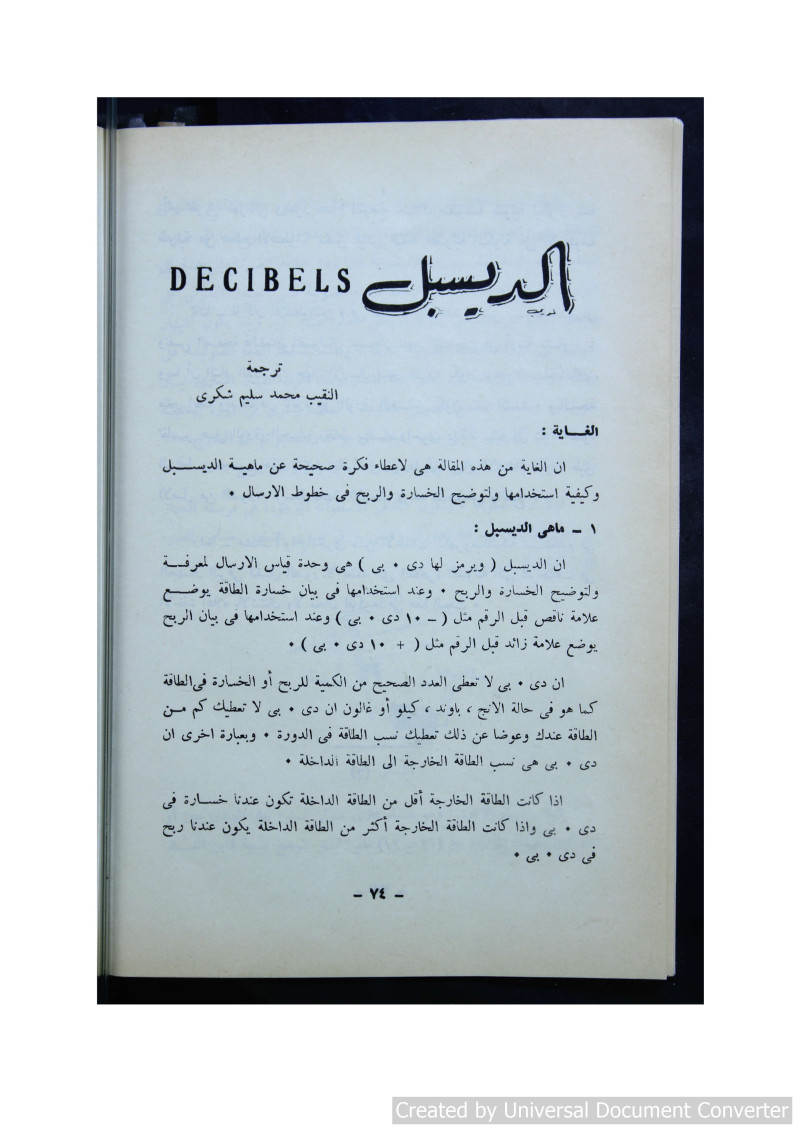 الديسبل DECIBELS
ترجمة
النقيب محمد سليم شكرى
الغـــاية :
ان الغاية من هذه المقالة هى لاعطاء فكرة صحيحة عن ماهيـة الديســـبل
وكيفية استخدامها ولتوضيح الخسارة والربح فى خطوط الارسال ٠
١ ـ ماهى الديسبل :
ان الديسبل ( ويرمز لها دى ٠ بى ) هى وحدة قياس الارسال لمعرفـــة
ولتوضيح الخسارة والربح ٠ وعند استخدامها فى بيان خسارة الطاقة يوضـــع
علامة ناقص قبل الرقم مثل ( ـ ١٠ دى ٠ بى ) وعند استخدامها فى بيان الربح
يوضع علامة زائد قبل الرقم مثل ( + ١٠ دى ٠ بى ) ٠
ان دى ٠ بى لا تعطى العدد الصحيح من الكمية للربح أو الخسارة فى الطاقة
كما هو فى حالة الأنج ، باوند ، كيلو أو غالون ان دى ٠ بى لا تعطيك كم مــن
الطاقة عندك وعوضا عن ذلك تعطيك نسب الطاقة فى الدورة ٠ وبعبارة اخرى ان
دى ٠ بى هى نسب الطاقة الخارجة الى الطاقة الداخلة ٠
اذا كانت الطاقة الخارجة أقل من الطاقة الداخلة تكون عندنا خســارة فى
دى ٠ بى واذا كانت الطاقة الخارجة أكثر من الطاقة الداخلة يكون عندنا ربح
فى دى ٠ بى ٠
ـ ٧٤ ـ
Created by Universal Document Converter